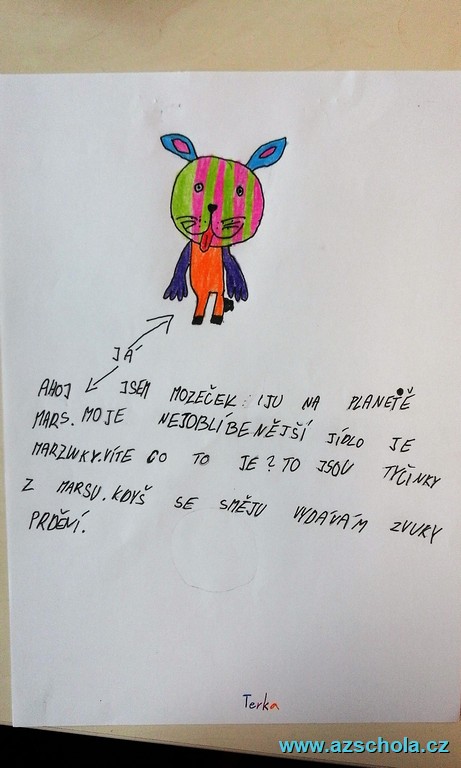 JÁ
AHOJ JSEM MOZEČEK IJU NA PLANETĚ
MARS. MOJE NEJOBLÍBENĚJŠÍ JÍDLO JE
MARZUNKY. VÍTE CO TO JE? TO JSOU TYČINKY
Z MARSU. KDYŠ SE SMĚJU VYDÁVÁM ZVUKY
PRDĚNÍ.
Terka
www.azschola.cz